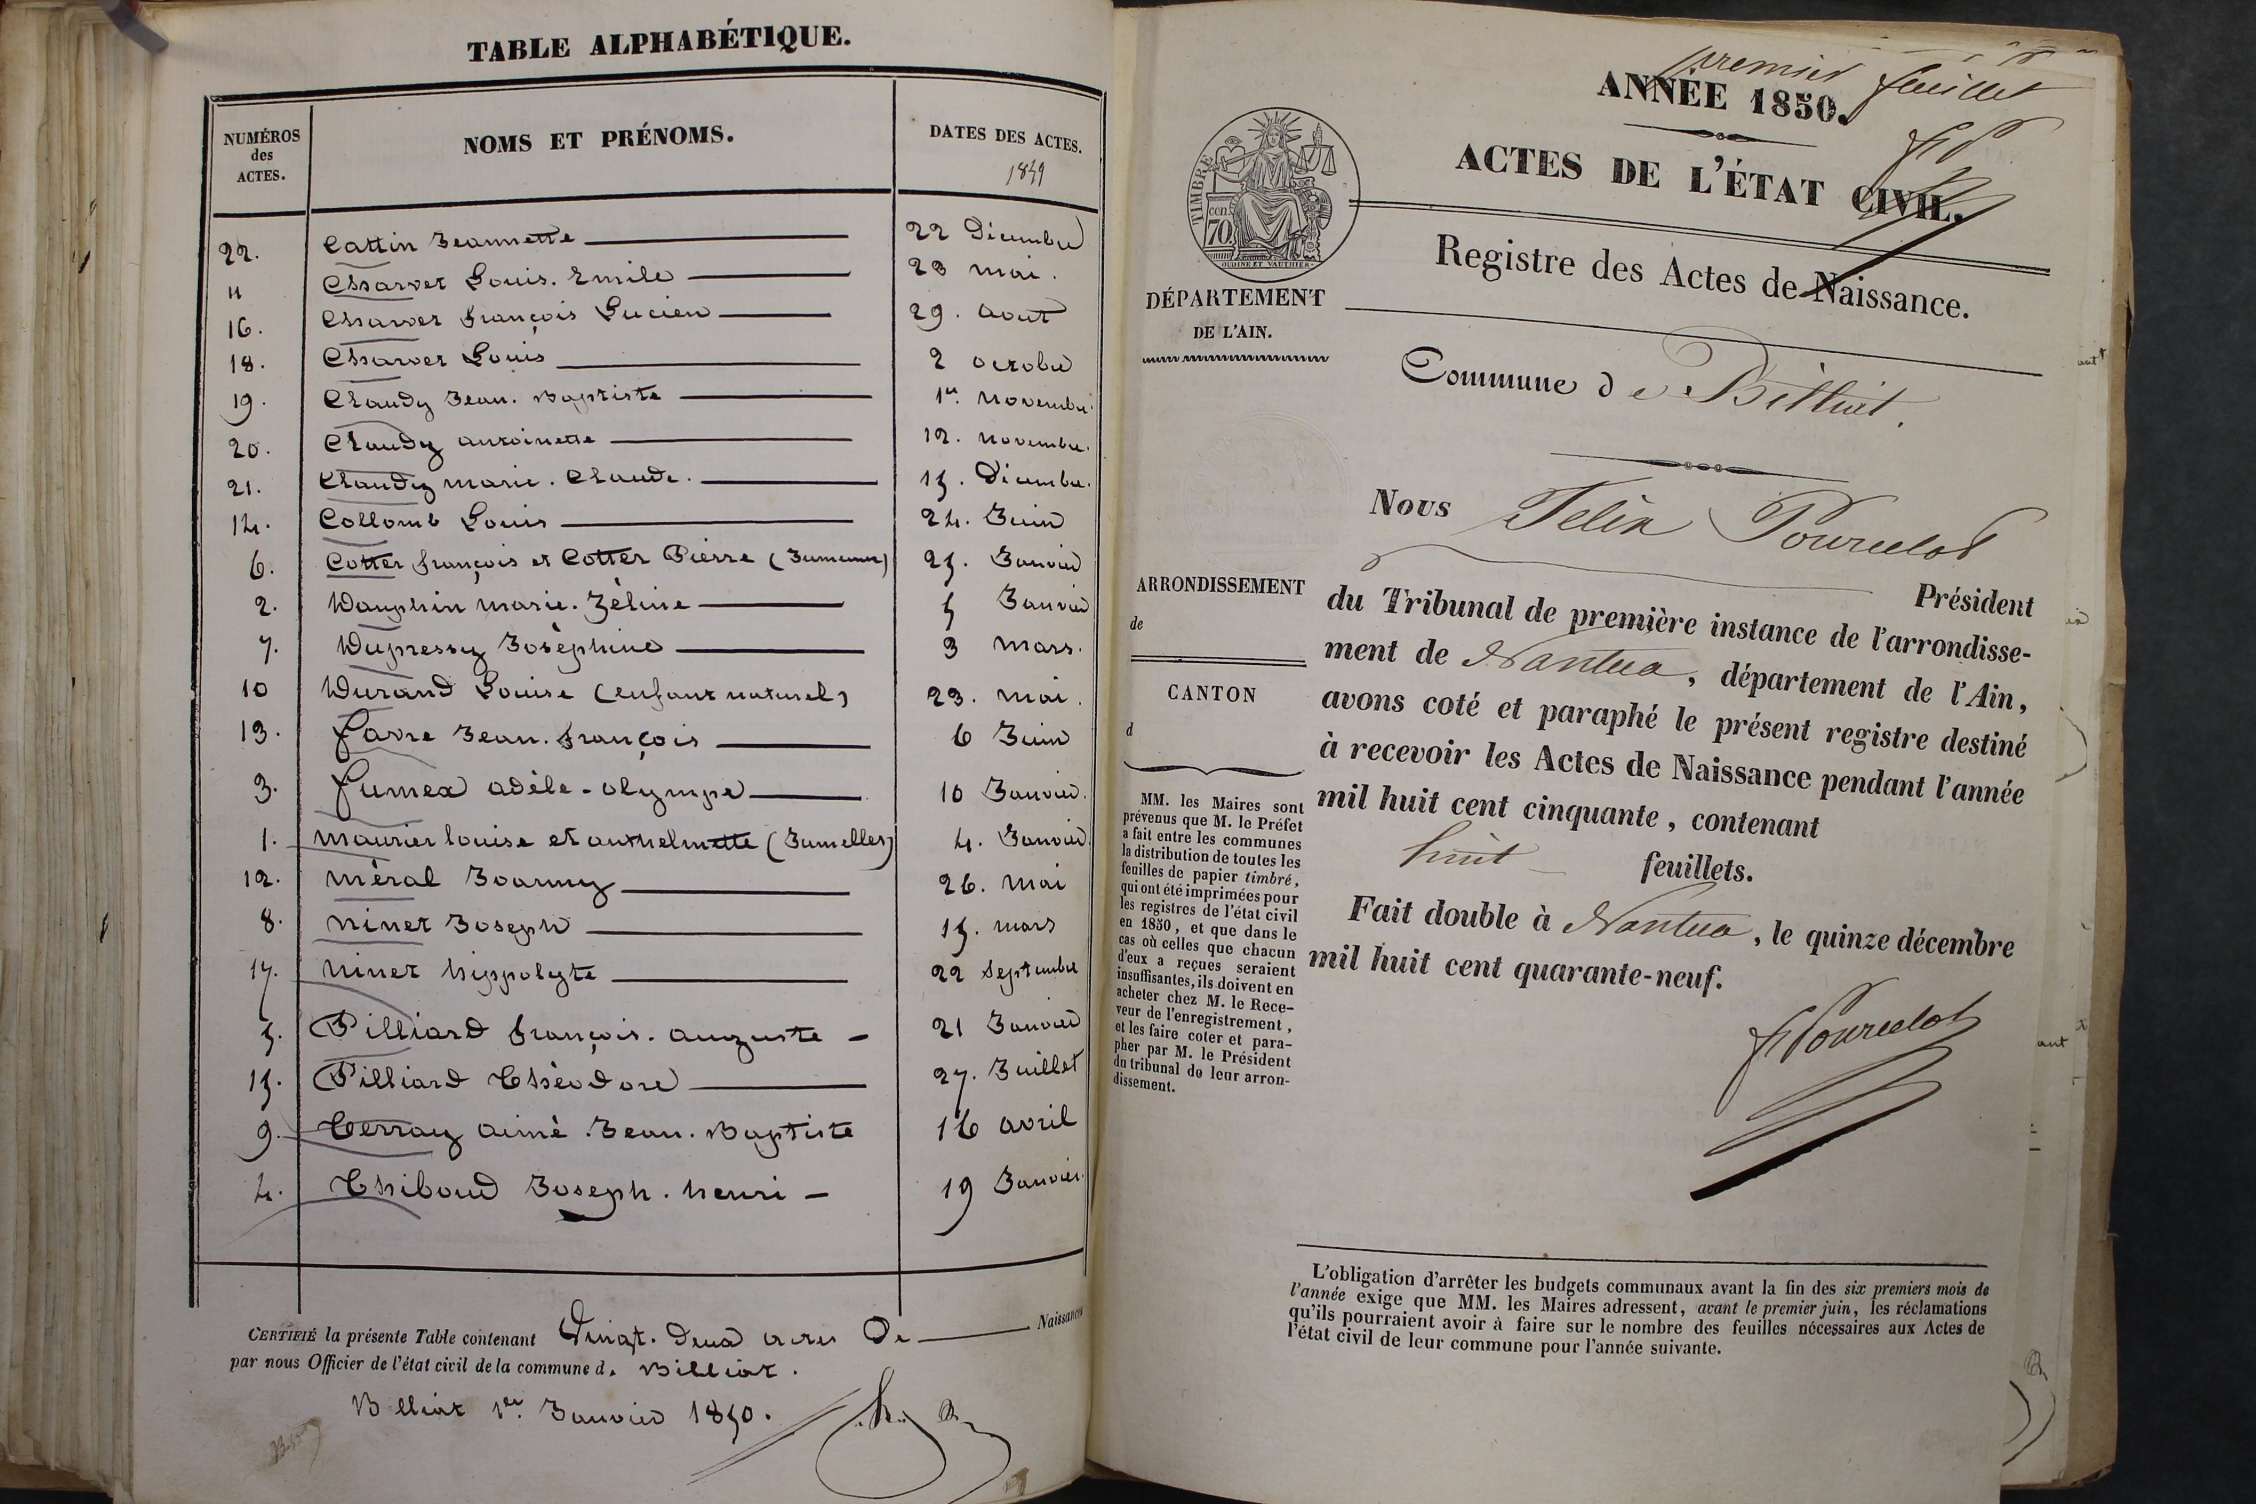 TABLE ALPHABÉTIQUE.
NUMÉROS des ACTES.
NOMS ET PRÉNOMS.
DATES DES ACTES.
1849
22. Cattin Jeannette 22 Décembre
11 Charvet Louis. Emile 23 mai.
16. Charvet françois Lucien 29. aout
18. Charvet Louis 2 octobre
19. Chaudy Jean. Baptiste 1er. novembre
20. Chaudy antoinette 12. novembre.
21. Chaudy marie. Claude. 15. Décembre.
14. Collomb Louis 24. Juin
6. Cotter françois et Cotter Pierre (Jumeaux) 25. Janvier
2. Dauphin marie. Zéline 5 Janvier
7. Dupressy Joséphine 3 mars.
10 Durand Louise (enfant naturel) 23. mai.
13. favre Jean. françois 6 Juin
3. fumex adèle-olympe 10 Janvier.
1. maurier louise et anthelmette (Jumelles) 4. Janvier.
12. méral Joanny 26. mai
8. ninet Joseph 15. mars
17. ninet hippolyte 22 septembre
5. Pilliard françois. auguste - 21 Janvier
15. Pilliard Théodore 27. Juillet
9. Terray aimé. Jean. Baptiste 16 avril
4. Thiboud Joseph. henri - 19 Janvier.
CERTIFIÉ la présente Table contenant Vingt. Deux actes De Naissances
par nous Officier de l'état civil de la commune d. Billiat.
Billiat 1er. Janvier 1850.
premier feuillet
ANNÉE 1850.
ACTES DE L'ÉTAT CIVIL.
TIMBRE
cen. 70
OUDINE ET VAUTHIER
Registre des Actes de Naissance.
DÉPARTEMENT
DE L'AIN.
Commune de Billiat.
Nous Felix Pourcelot
Président
du Tribunal de première instance de l'arrondisse-
ment de Nantua, département de l'Ain,
avons coté et paraphé le présent registre destiné
à recevoir les Actes de Naissance pendant l'année
mil huit cent cinquante, contenant
huit feuillets.
Fait double à Nantua, le quinze décembre
mil huit cent quarante-neuf.
fPourcelot
ARRONDISSEMENT
de
CANTON
d
MM. les Maires sont
prévenus que M. le Préfet
a fait entre les communes
la distribution de toutes les
feuilles de papier timbré,
qui ont été imprimées pour
les registres de l'état civil
en 1850, et que dans le
cas où celles que chacun
d'eux a reçues seraient
insuffisantes, ils doivent en
acheter chez M. le Rece-
veur de l'enregistrement,
et les faire coter et para-
pher par M. le Président
du tribunal de leur arron-
dissement.
L'obligation d'arrêter les budgets communaux avant la fin des six premiers mois de
l'année exige que MM. les Maires adressent, avant le premier juin, les réclamations
qu'ils pourraient avoir à faire sur le nombre des feuilles nécessaires aux Actes de
l'état civil de leur commune pour l'année suivante.